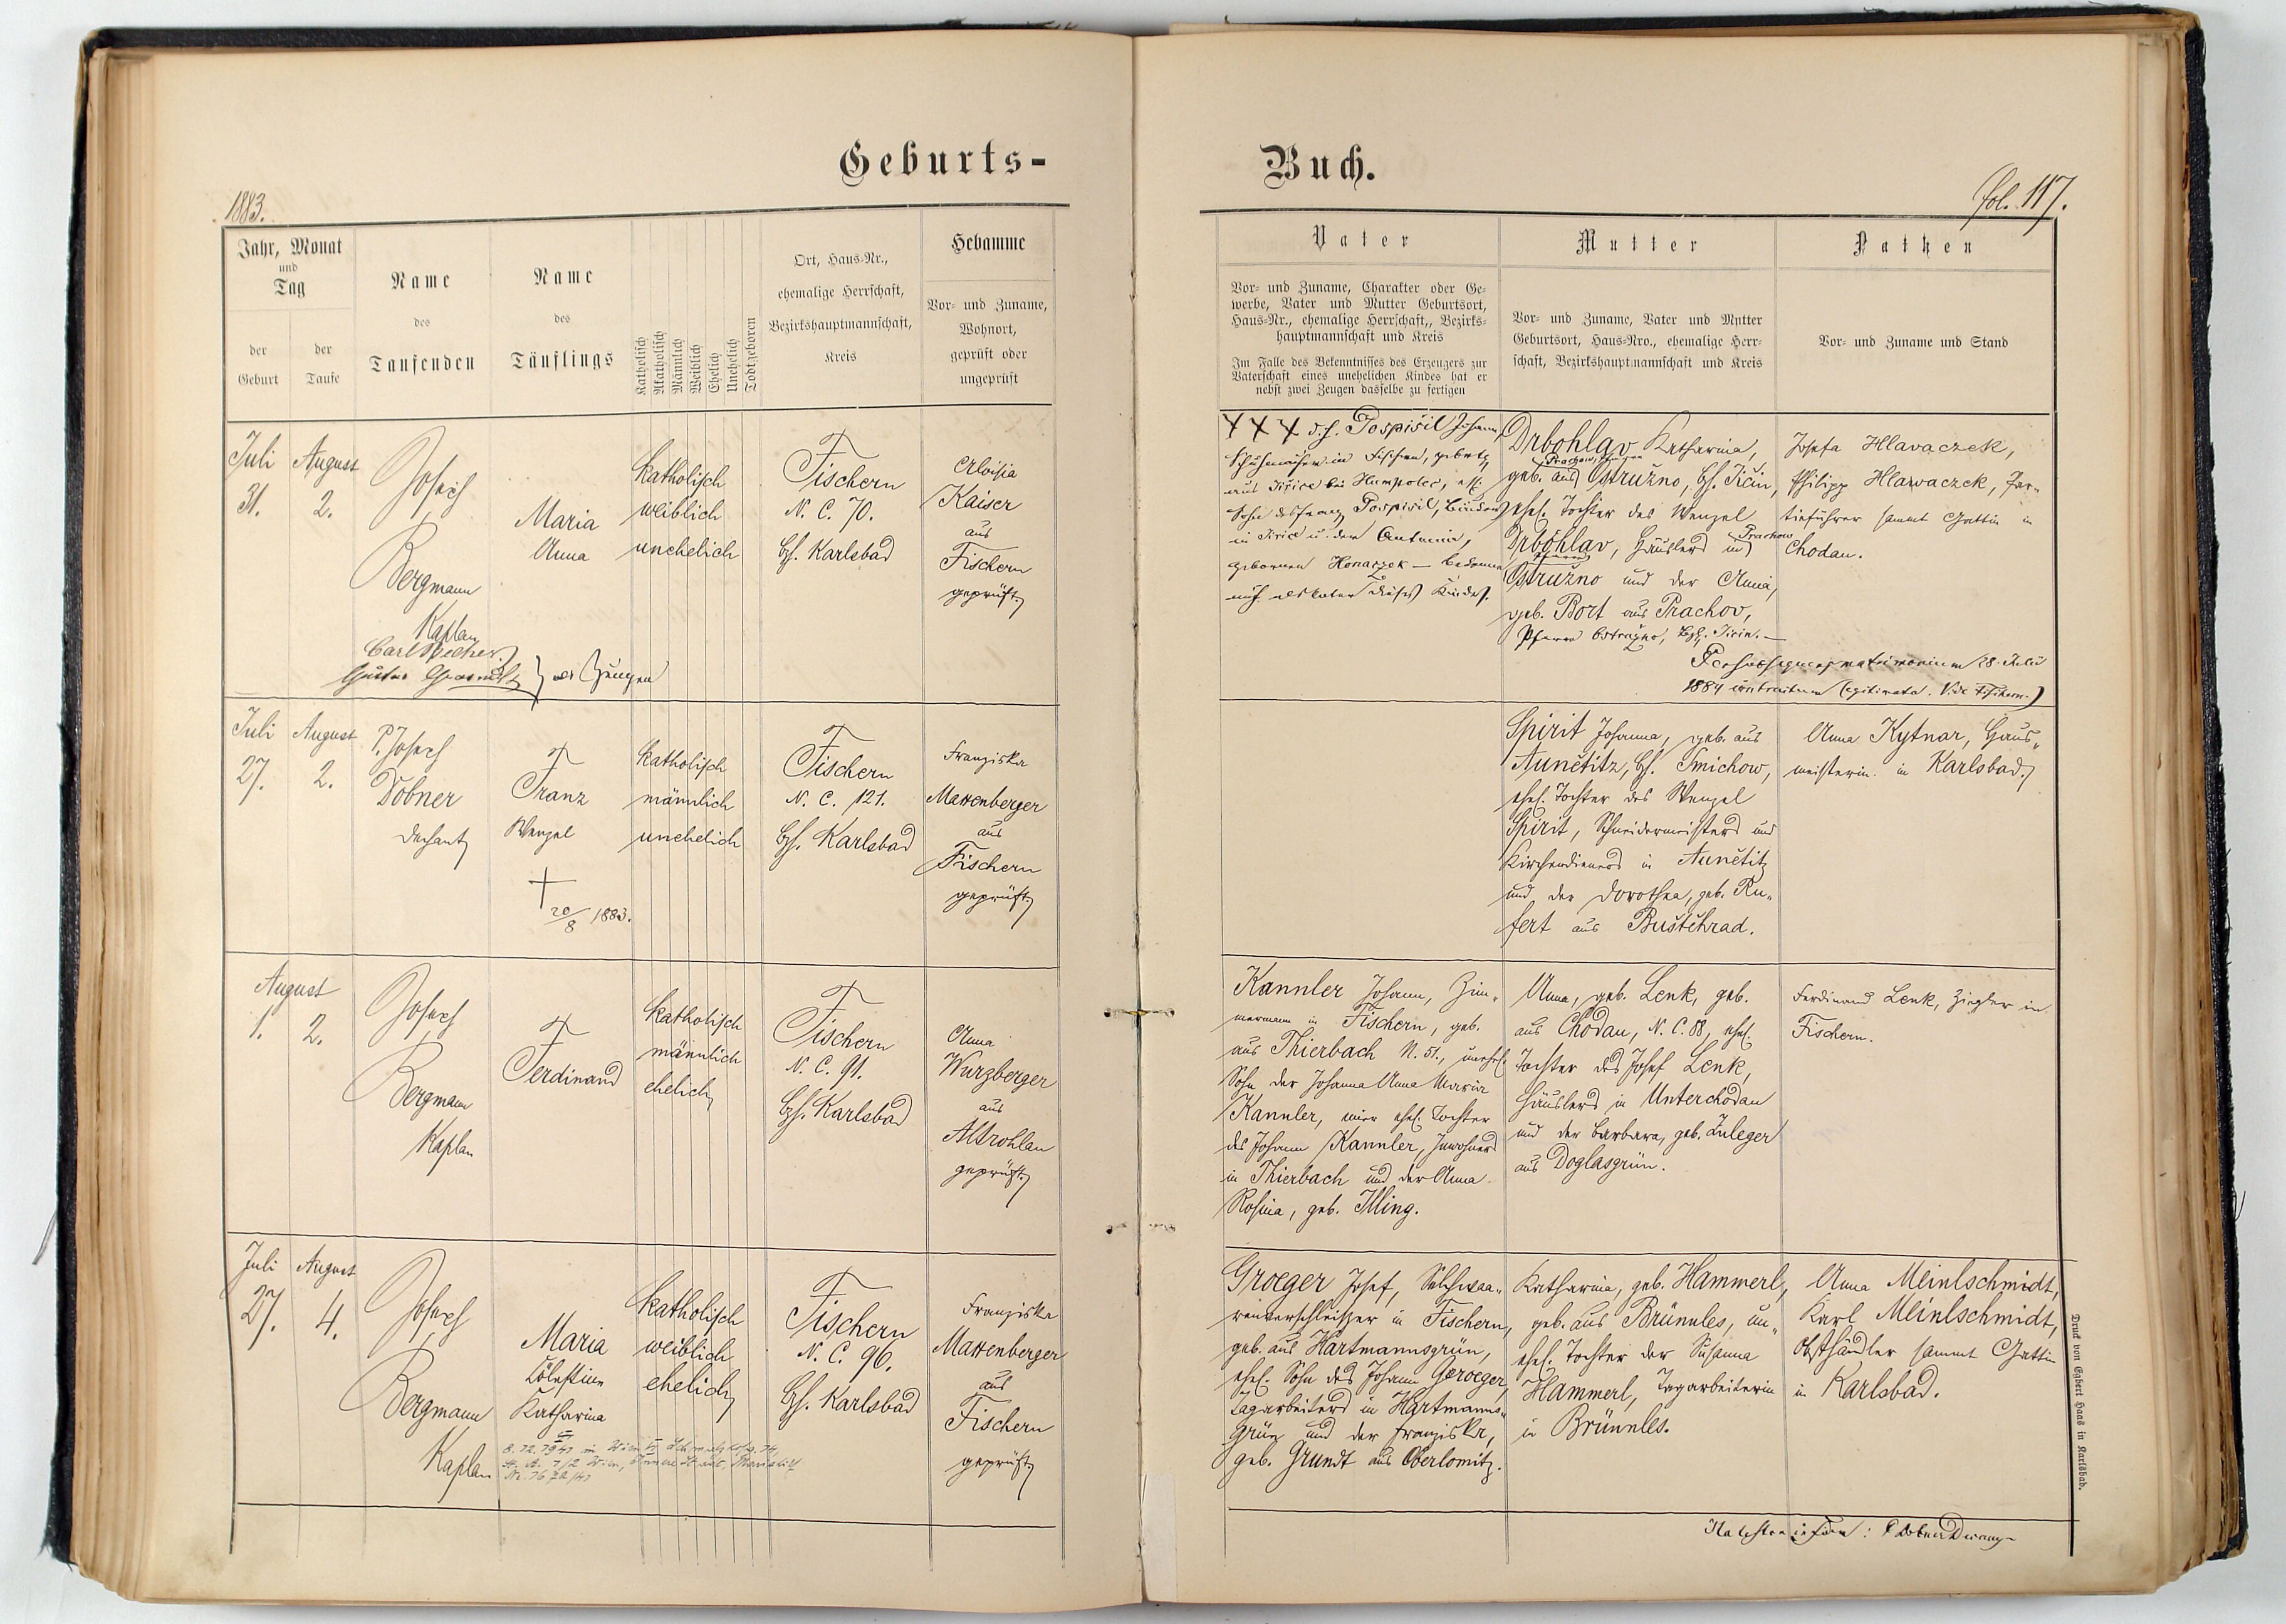 Geburts-
Buch.
1883.
fol. 117.
Jahr, Monat
und
Tag
der
Geburt
der
Taufe
Name
des
Taufenden
Name
des
Täuflings
Katholisch
Akatholisch
Männlich
Weiblich
Ehelich
Unehelich
Todtgeboren
Ort, Haus-Nr.,
ehemalige Herrschaft,
Bezirkshauptmannschaft,
Kreis
Hebamme
Vor- und Zuname,
Wohnort,
geprüft oder
ungeprüft
Vater
Vor- und Zuname, Charakter oder Ge-
werbe, Vater und Mutter Geburtsort,
Haus-Nr., ehemalige Herrschaft,, Bezirks-
hauptmannschaft und Kreis
Im Falle des Bekenntnisses des Erzeugers zur
Vaterschaft eines unehelichen Kindes hat er
nebst zwei Zeugen dasselbe zu fertigen
Mutter
Vor- und Zuname, Vater und Mutter
Geburtsort, Haus-Nro., ehemalige Herr-
schaft, Bezirkshauptmannschaft und Kreis
Pathen
Vor- und Zuname und Stand
Juli
31.
August
2.
Josef
Bergmann
Kaplan
Maria
Anna
katholisch
weiblich
unehelich
Fischern
N. C. 70.
Bh. Karlsbad
Aloisia
Kaiser
aus
Fischern
geprüft
als Zeugen
XXX d. h. Pospisil Johann,
Schuhmacher in Fischern, gebürtig
aus Jiřice bei Humpolec, ehl.
Sohn des Franz Pospisil,
in Jiřice u. der Antonia,
gebornen Honaczek — bekenne
mich als Vater dieses Kindes.
Drbohlav Katharina,
geb. aus Ostružno, Bh. Jičin,
ehel. Tochter des Wenzel
Drbohlav, Häuslers in Prachow
Ostružno und der Anna,
geb. Bort aus Prachov,
Pfarre Ostružno, Bzh. Jicin. —
Per subsequens matrimonium 28. Juli
1884 contractum legitimata. Vide Fischern.
Josefa Hlavaczek,
Philipp Hlawaczek, Par-
tieführer sammt Gattin in
Chodau.
Juli
27.
August
2.
P. Josef
Dobner
Dechant
Franz
Wenzel
+
20/8 1883.
katholisch
männlich
unehelich
Fischern
N. C. 121.
Bh. Karlsbad
Franziska
Mattenberger
aus
Fischern
geprüft
Spirit Johanna, geb. aus
Aunětitz, Bh. Smichow,
ehel. Tochter des Wenzel
Spirit, Schneidermeisters und
Kirchendieners in Aunětitz
und der Dorothea, geb. Ru-
fert aus Buštěhrad.
Anna Kytnar, Haus-
meisterin in Karlsbad.
August
1. 2.
Josef
Bergmann
Kaplan
Ferdinand
katholisch
männlich
ehelich
Fischern
N. C. 91.
Bh. Karlsbad
Anna
Wurzberger
aus
Altrohlau
geprüft
Kannler Johann, Zim-
mermann in Fischern, geb.
aus Thierbach N. 51., unehel.
Sohn der Johanna Anna Maria
Kannler, einer ehel. Tochter
des Johann Kannler, Inwohners
in Thierbach und der Anna
Rosina, geb. Illing.
Anna, geb. Lenk, geb.
aus Chodau, N. C. 88, ehel.
Tochter des Josef Lenk,
Häuslers in Unterchodau
und der Barbara, geb. Zuleger
aus Doglasgrün.
Ferdinand Lenk, Ziegler in
Fischern.
Juli
27.
August
4.
Josef
Bergmann
Kaplan
Maria
Cölestine
Katharina
katholisch
weiblich
ehelich
Fischern
N. C. 96.
Bh. Karlsbad
Franziska
Mattenberger
aus
Fischern
geprüft
Groeger Josef, Selchwaa-
renverschleißer in Fischern,
geb. aus Hartmannsgrün,
ehel. Sohn des Johann Geroeger,
Tagarbeiters in Hartmanns-
grün und der Franziska,
geb. Grundt aus Oberlomitz.
Katharina, geb. Hammerl,
geb. aus Brünnles, un-
ehel. Tochter der Susanna
Hammerl, Tagarbeiterin
in Brünnles.
Anna Meinlschmidt,
Karl Meinlschmidt,
Obsthändler sammt Gattin
in Karlsbad.
Druck von Egbert Haas in Karlsbad.